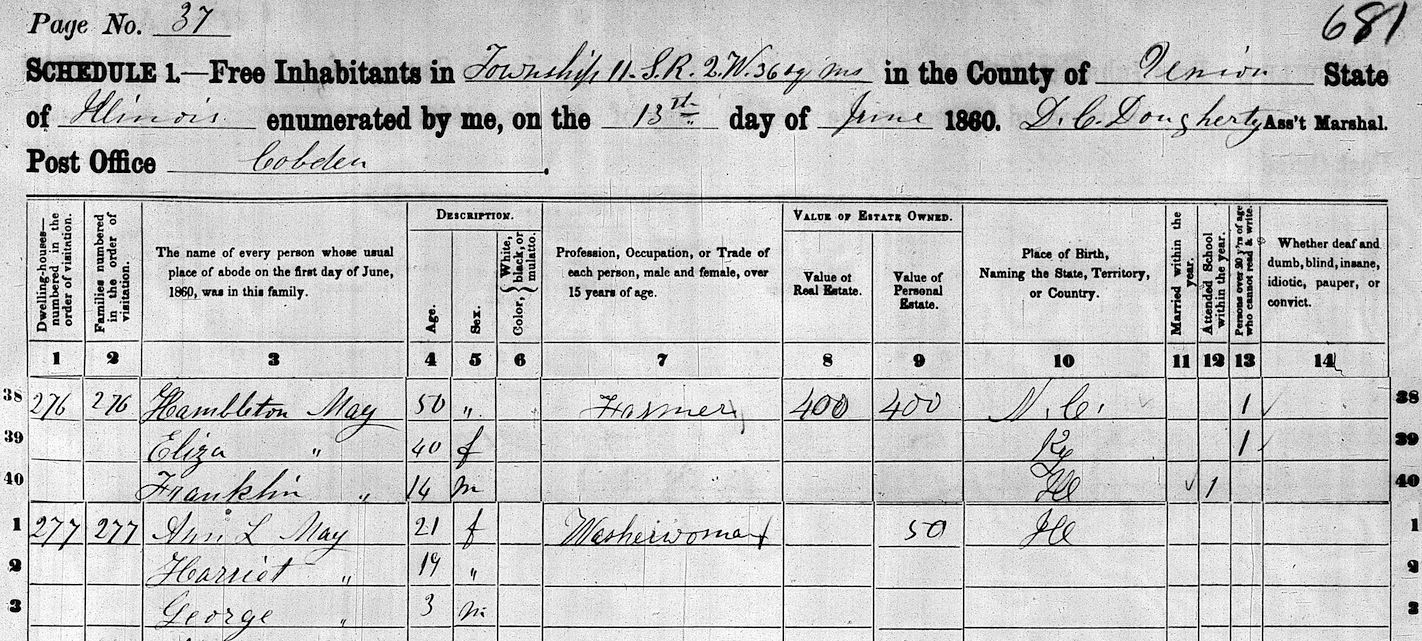 Page No. 37
681
SCHEDULE 1.—Free Inhabitants in Township 11. S. R. 2. W. 36 sq ms in the County of Union State
of Illinois enumerated by me, on the 13st day of June 1860. D. C. Dougherty Ass't Marshal.
Post Office Cobden.
Dwelling-houses—numbered in the order of visitation.
Families numbered in the order of visitation.
The name of every person whose usual place of abode on the first day of June, 1860, was in this family.
DESCRIPTION.
Age.
Sex.
Color, { White, black, or mulatto.
Profession, Occupation, or Trade of each person, male and female, over 15 years of age.
VALUE OF ESTATE OWNED.
Value of Real Estate.
Value of Personal Estate.
Place of Birth, Naming the State, Territory, or Country.
Married within the year.
Attended School within the year.
Persons over 20 y'rs of age who cannot read & write.
Whether deaf and dumb, blind, insane, idiotic, pauper, or convict.
1 2 3 4 5 6 7 8 9 10 11 12 13 14
38 276 276 Hambleton May 50 " Farmer 400 400 N. C. 1 38
39 Eliza " 40 f Ky 1 39
40 Franklin " 14 m Ill 1 40
1 277 277 Ann L May 21 f Washerwoman 50 Ill 1
2 Harriet " 19 " 2
3 George " 3 m 3